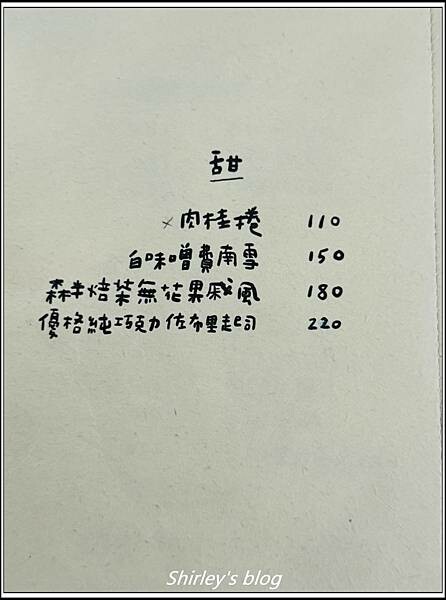 甜
×肉桂捲 110
白味噌費南雪 150
森半焙茶無花果戚風 180
優格純巧克力佐布里起司 220
Shirley's blog